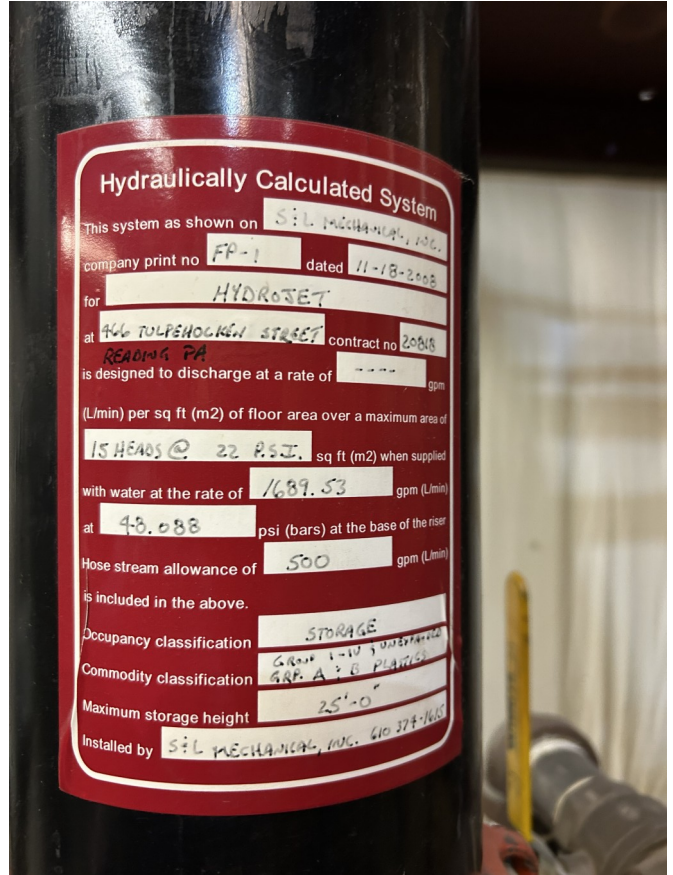 Hydraulically Calculated System
This system as shown on S&L MECHANICAL, INC.
company print no FP-1 dated 11-18-2008
for HYDROJET
at 466 TULPEHOCKEN STREET contract no 20818
READING PA
is designed to discharge at a rate of ---- gpm
(L/min) per sq ft (m2) of floor area over a maximum area of
15 HEADS @ 22 P.S.I. sq ft (m2) when supplied
with water at the rate of 1689.53 gpm (L/min)
at 48.088 psi (bars) at the base of the riser
Hose stream allowance of 500 gpm (L/min)
is included in the above.
Occupancy classification STORAGE
GROUP I-IV & UNEXPANDED
Commodity classification GRP. A & B PLASTICS
Maximum storage height 25'-0"
Installed by S&L MECHANICAL, INC. 610 374-1615